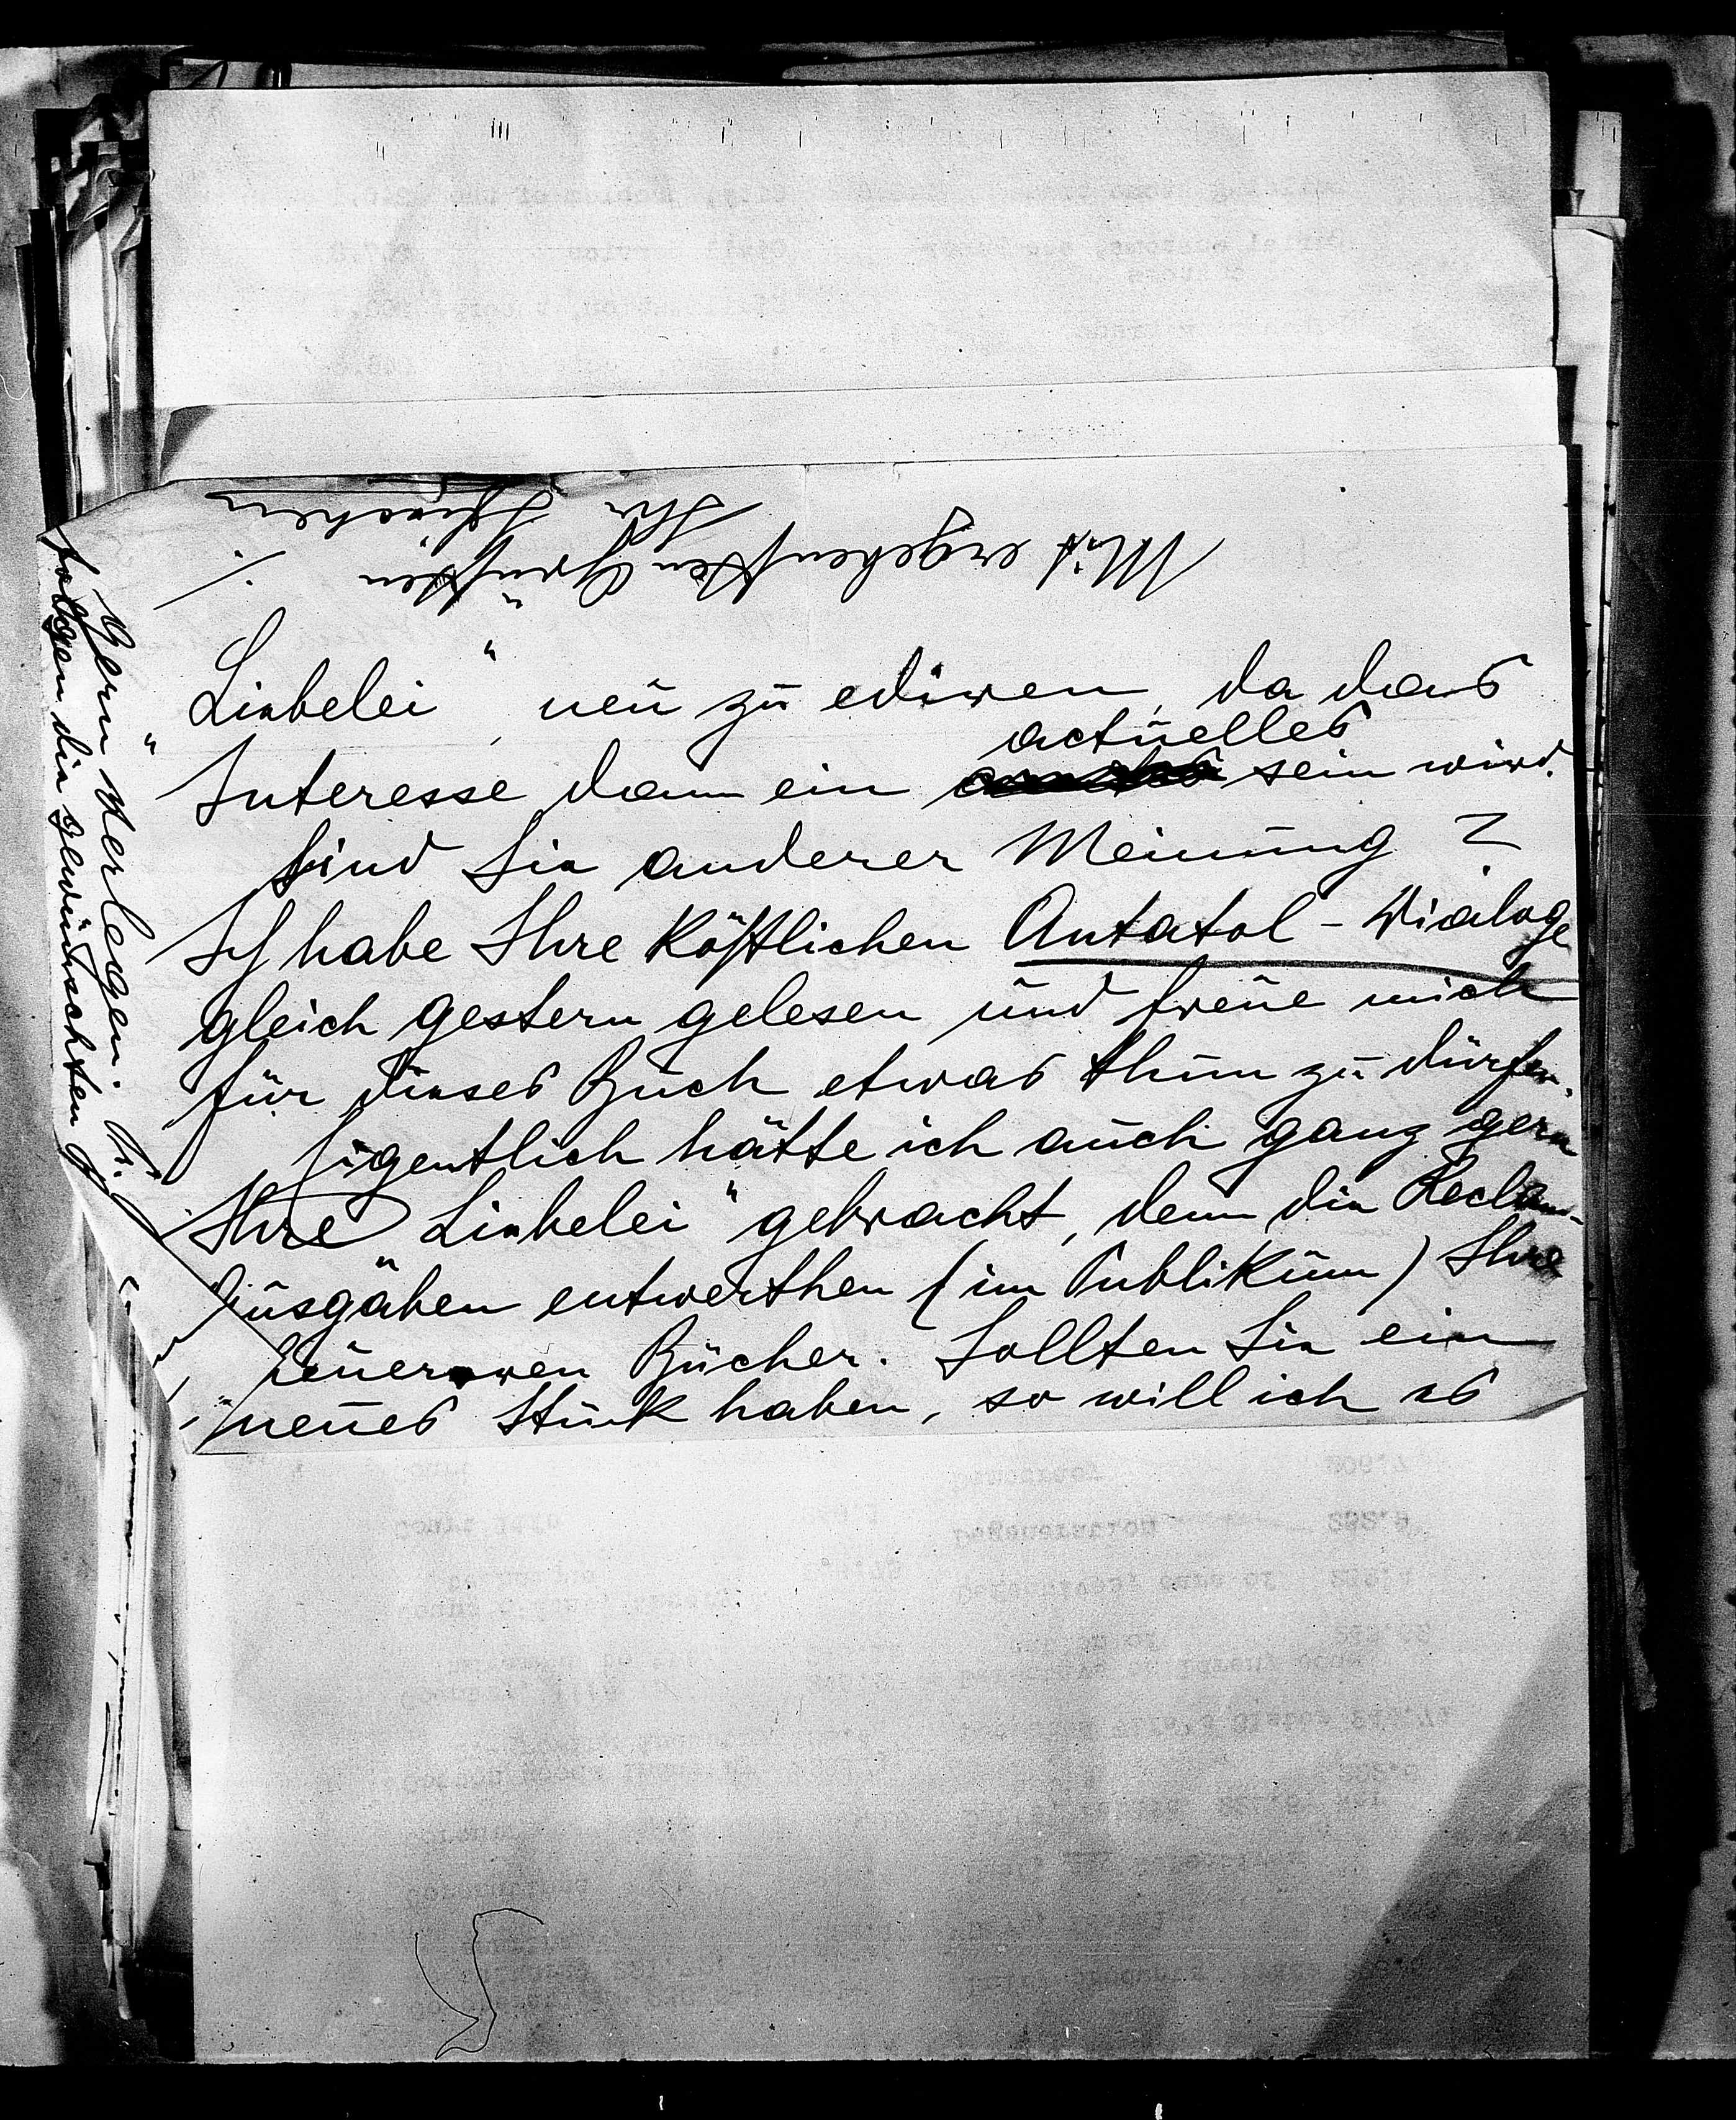 Liebelei“ neu zu ediren, da das
Interesse dann ein actuelles sein wird.
Sind Sie anderer Meinung?
Ich habe Ihre köstlichen Antatol-Dialoge
gleich gestern gelesen und freue mich
für dieses Buch etwas thun zu dürfen.
Eigentlich hätte ich auch ganz gern
Ihre „Liebelei“ gebracht, denn die Reclam-
Ausgaben entwerthen (im Publikum) Ihre
teuereren Bücher. Sollten Sie ein
neues Stück haben, so will ich es
gern verlegen.
folgen die gewünschten
Mit ergebensten Grüßen
Ihr